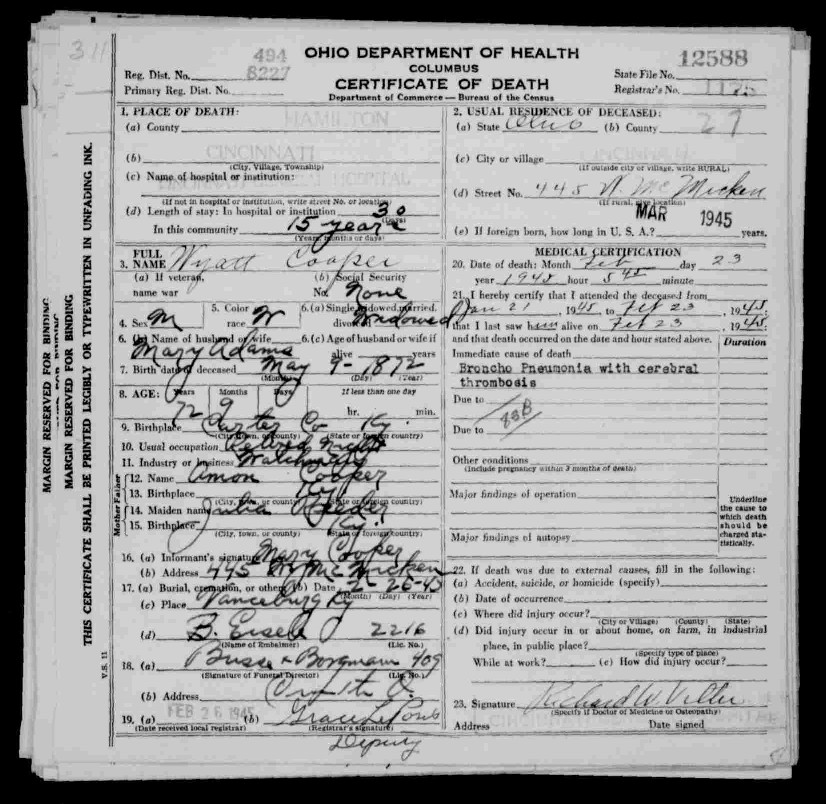 311
494
OHIO DEPARTMENT OF HEALTH
12588
Reg. Dist. No. 8227
COLUMBUS
State File No.
Primary Reg. Dist. No.
CERTIFICATE OF DEATH
Registrar's No. 1175
Department of Commerce — Bureau of the Census
1. PLACE OF DEATH:
(a) County HAMILTON
(b) CINCINNATI
(City, Village, Township)
(c) Name of hospital or institution:
CINCINNATI GENERAL HOSPITAL
(If not in hospital or institution, write street No. or location)
(d) Length of stay: In hospital or institution 30
(Days)
In this community 15 years
(Years, months or days)
2. USUAL RESIDENCE OF DECEASED:
(a) State Ohio (b) County 27
(c) City or village CINCINNATI
(If outside city or village, write RURAL)
(d) Street No. 445 W. McMicken
(If rural, give location)
MAR 1945
(e) If foreign born, how long in U. S. A.? years.
FULL
3. NAME Wyatt Cooper
(a) If veteran, (b) Social Security
name war No. None
4. Sex M 5. Color race W 6. (a) Single, widowed, married, divorced Widowed
6. (b) Name of husband or wife 6. (c) Age of husband or wife if
Mary Adams alive years
7. Birth date of deceased May 9 - 1872
(Month) (Day) (Year)
8. AGE: Years Months Days If less than one day
72 9 hr. min.
9. Birthplace Carter Co Ky.
(City, town, or county) (State or foreign country)
10. Usual occupation Retired Night
11. Industry or business Watchman
Mother Father
12. Name Amon Cooper
13. Birthplace Ky
(City, town, or county) (State or foreign country)
14. Maiden name Julia Reeder
15. Birthplace Ky.
(City, town, or county) (State or foreign country)
16. (a) Informant's signature Mary Cooper
(b) Address 445 W. McMicken
17. (a) Burial, cremation, or other (b) Date 2-26-45
(Month) (Day) (Year)
(c) Place Vanceburg Ky
(d) B. Eisele 2216
(Name of Embalmer) (Lic. No.)
18. (a) Busse & Borgmann 409
(Signature of Funeral Director) (Lic. No.)
(b) Address
19. (a) FEB 26 1945 (b) Grace
(Date received local registrar) (Registrar's signature)
Deputy
MEDICAL CERTIFICATION
20. Date of death: Month Feb day 23
year 1945 hour 5 45 minute
21. I hereby certify that I attended the deceased from
Jan 21, 1945, to Feb 23, 1945.
that I last saw him alive on Feb 23, 1945.
and that death occurred on the date and hour stated above.
Duration
Immediate cause of death
Broncho Pneumonia with cerebral
thrombosis
Due to
83B
Due to
Other conditions
(Include pregnancy within 3 months of death)
Major findings of operation
Major findings of autopsy
Underline
the cause to
which death
should be
charged sta-
tistically.
22. If death was due to external causes, fill in the following:
(a) Accident, suicide, or homicide (specify)
(b) Date of occurrence
(c) Where did injury occur?
(City or Village) (County) (State)
(d) Did injury occur in or about home, on farm, in industrial
place, in public place?
(Specify type of place)
While at work? (e) How did injury occur?
23. Signature Richard W.
(Specify if Doctor of Medicine or Osteopathy)
Address Date signed
MARGIN RESERVED FOR BINDING
MARGIN RESERVED FOR BINDING
THIS CERTIFICATE SHALL BE PRINTED LEGIBLY OR TYPEWRITTEN IN UNFADING INK.
V.S. 11